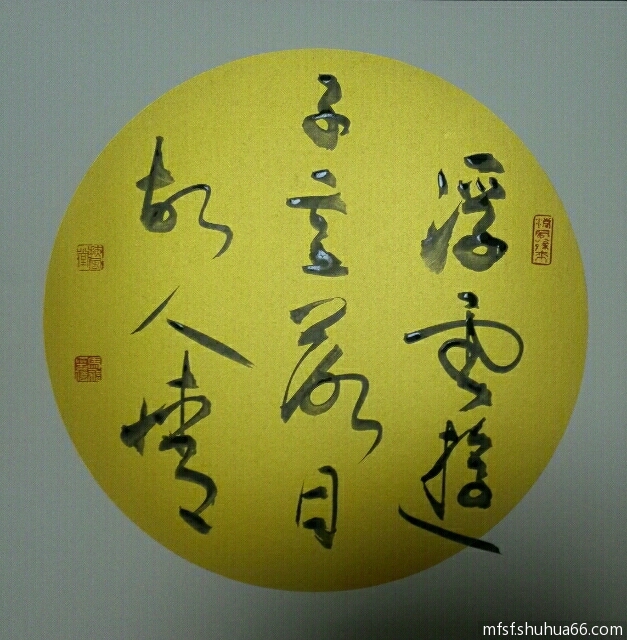 浮雲遊
子意落日
故人情
mfsfshuhua66.com